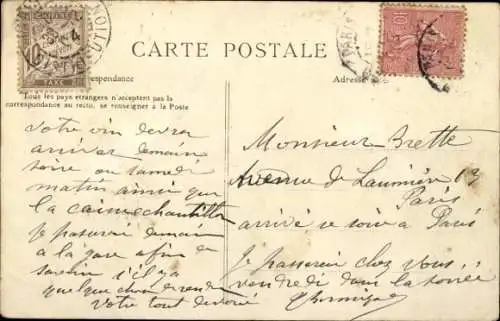 CHIFFRE
10
TAXE
10
CARTE POSTALE
Correspondance
Adresse
Tous les pays étrangers n'acceptent pas la
correspondance au recto, se renseigner à la Poste
Votre vin devra
arriver demain
soire ou samedi
matin ainsi que
la caisse échantillon
je passerai demain
à la gare afin de
s'il y a
quelque chose
Votre tout dévoué
Monsieur Brette
Avenue de Laumière 13
Paris
arrivé ce soir à Paris
Je passerai chez vous
vendredi dans la soirée